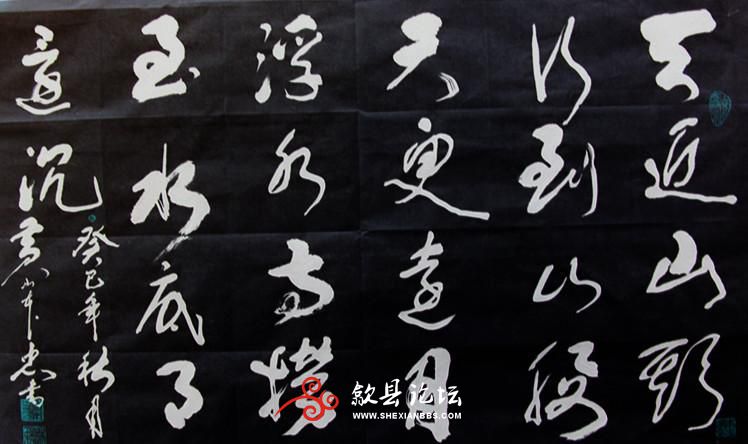 天近山頭
行到山腰
天更遠月
浮水面撈
至水底月
還沉
癸巳年秋月
黄山忠書
歙县论坛
WWW.SHEXIANBBS.COM